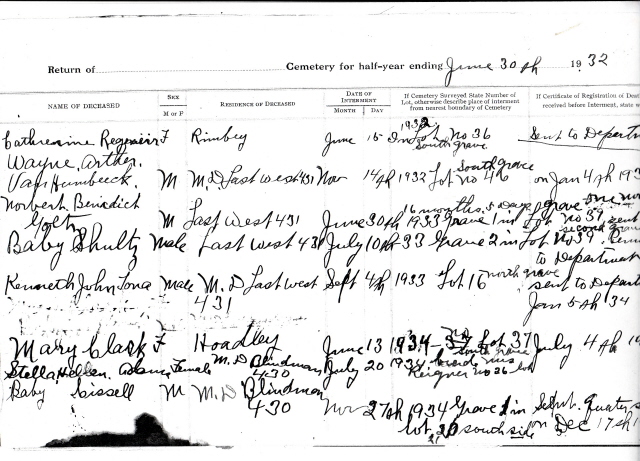 Return of Cemetery for half-year ending June 30th 1932
NAME OF DECEASED SEX M or F RESIDENCE OF DECEASED DATE OF INTERMENT MONTH DAY If Cemetery Surveyed State Number of Lot, otherwise describe place of interment from nearest boundary of Cemetery If Certificate of Registration of Deat received before Interment, state
1932
Catherine F Rimbey June 15 In Lot No 36 Sent to Departm
south grave
Wayne Arther
South grave
Van Humbeeck M M.D Last West 431 Nov 14th 1932 Lot no 46 on Jan 4th 193
Norbert Benedict 16 months 5 Days grave one in
Goltz M Last West 431 June 30th 1933 Grave 1 in Lot No 39 sent
second grave
Baby Shultz Male Last West 431 July 10th 33 Grave 2 in Lot No 39
to Department
north grave
Kenneth John Iona Male M.D Last West Sept 4th 1933 Lot 16 sent to Depart
431 Jan 5th 34
Mary Clark F Hoadley June 13 1934 Lot 37 July 4th
south grave
Stella Hellen Adams Female M.D Blindman July 20 1934
430 No 36 lot
Baby Cissell M M.D Blindman
430 Nov 27th 1934 Grave 1 in
lot 20 south side on Dec 17th 1